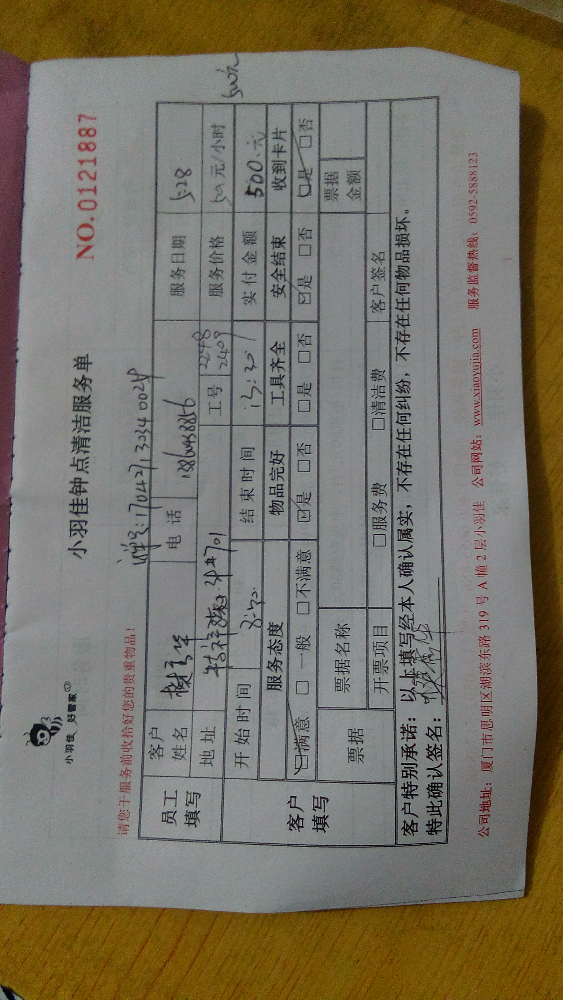 小羽佳 好管家
小羽佳钟点清洁服务单
NO.0121887
请您于服务前收拾好您的贵重物品!
单号: 170427
员工填写
客户姓名
电话
服务日期 5.28
地址
工号 2248 2409
服务价格 元/小时
开始时间
结束时间
实付金额 500.元
客户填写
服务态度 物品完好 工具齐全 安全结束 收到卡片
☑满意 □一般 □不满意 ☑是 □否 □是 □否 ☑是 □否 ☑是 □否
票据
票据名称
票据金额
开票项目 □服务费 □清洁费 客户签名
客户特别承诺: 以上填写经本人确认属实,不存在任何纠纷,不存在任何物品损坏。
特此确认签名:
公司地址: 厦门市思明区湖滨东路 319 号 A 幢 2 层小羽佳 公司网站: www.xiaoyujia.com 服务监督热线: 0592-5888123